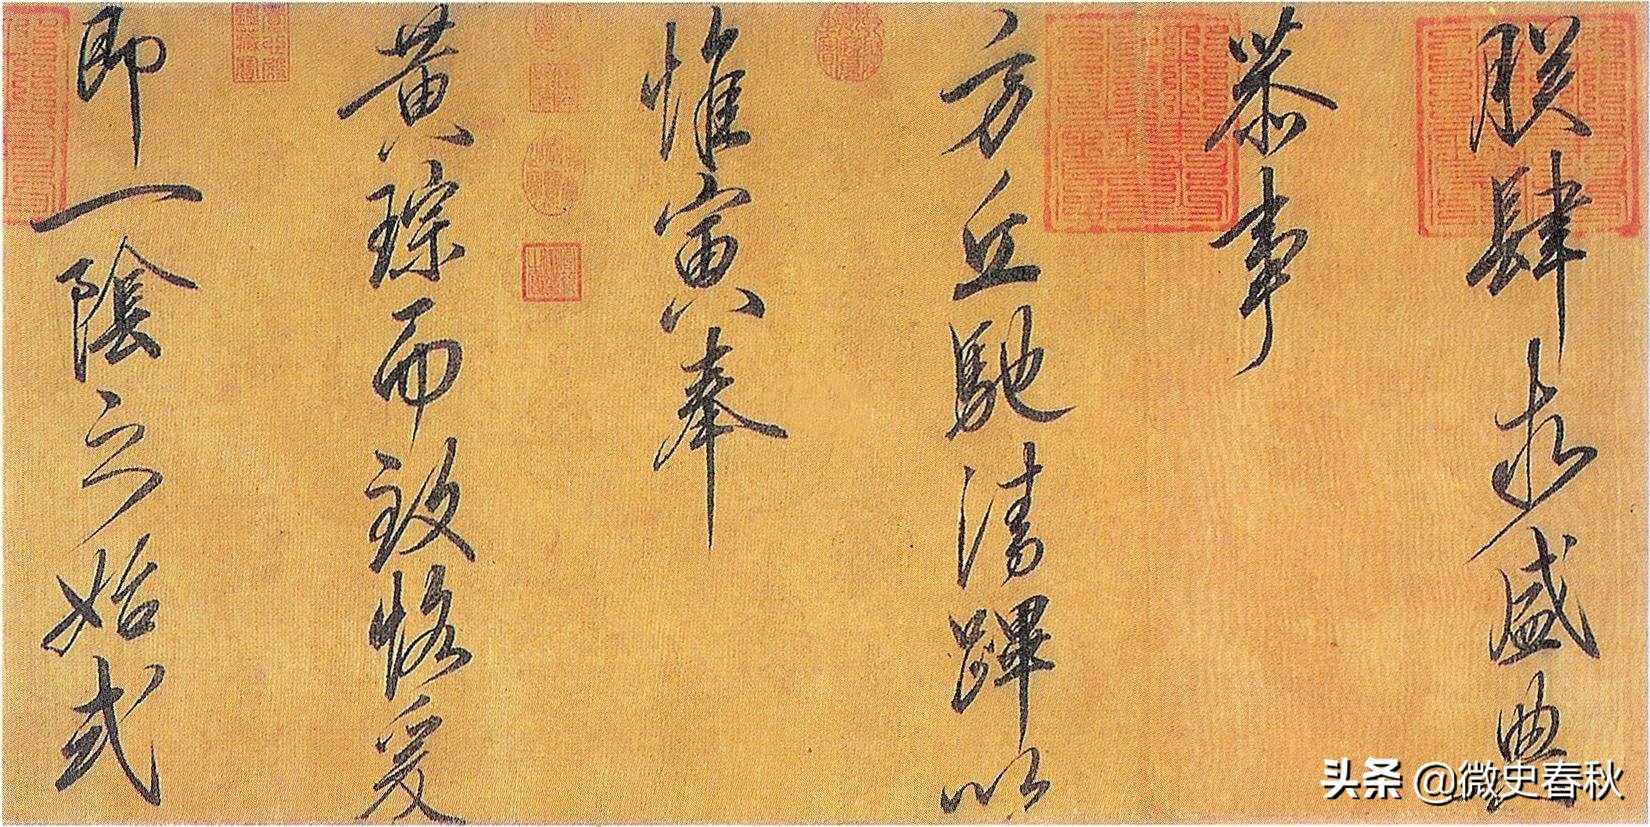 朕肆求盛典
恭事
方丘馳清蹕以
惟寅奉
黄琮而致恪爰
即一陰之始式
头条 @微史春秋